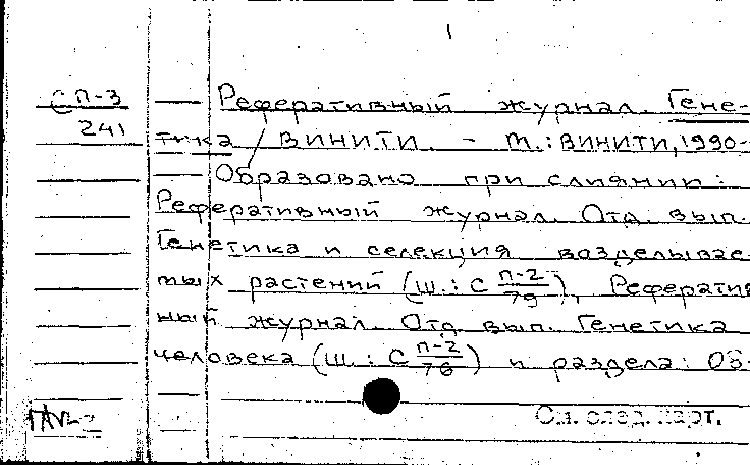 1
С П-3
241
Реферативный журнал. Гене-
тика / ВИНИТИ. - М.: ВИНИТИ, 1990-
Образовано при слиянии:
Реферативный журнал. Отд. вып.
Генетика и селекция возделывае-
мых растений (ш.: С П-2/79), Реферативный
ный журнал. Отд. вып. Генетика
человека (ш.: С П-2/76) и раздела: Об-
См. след. карт.